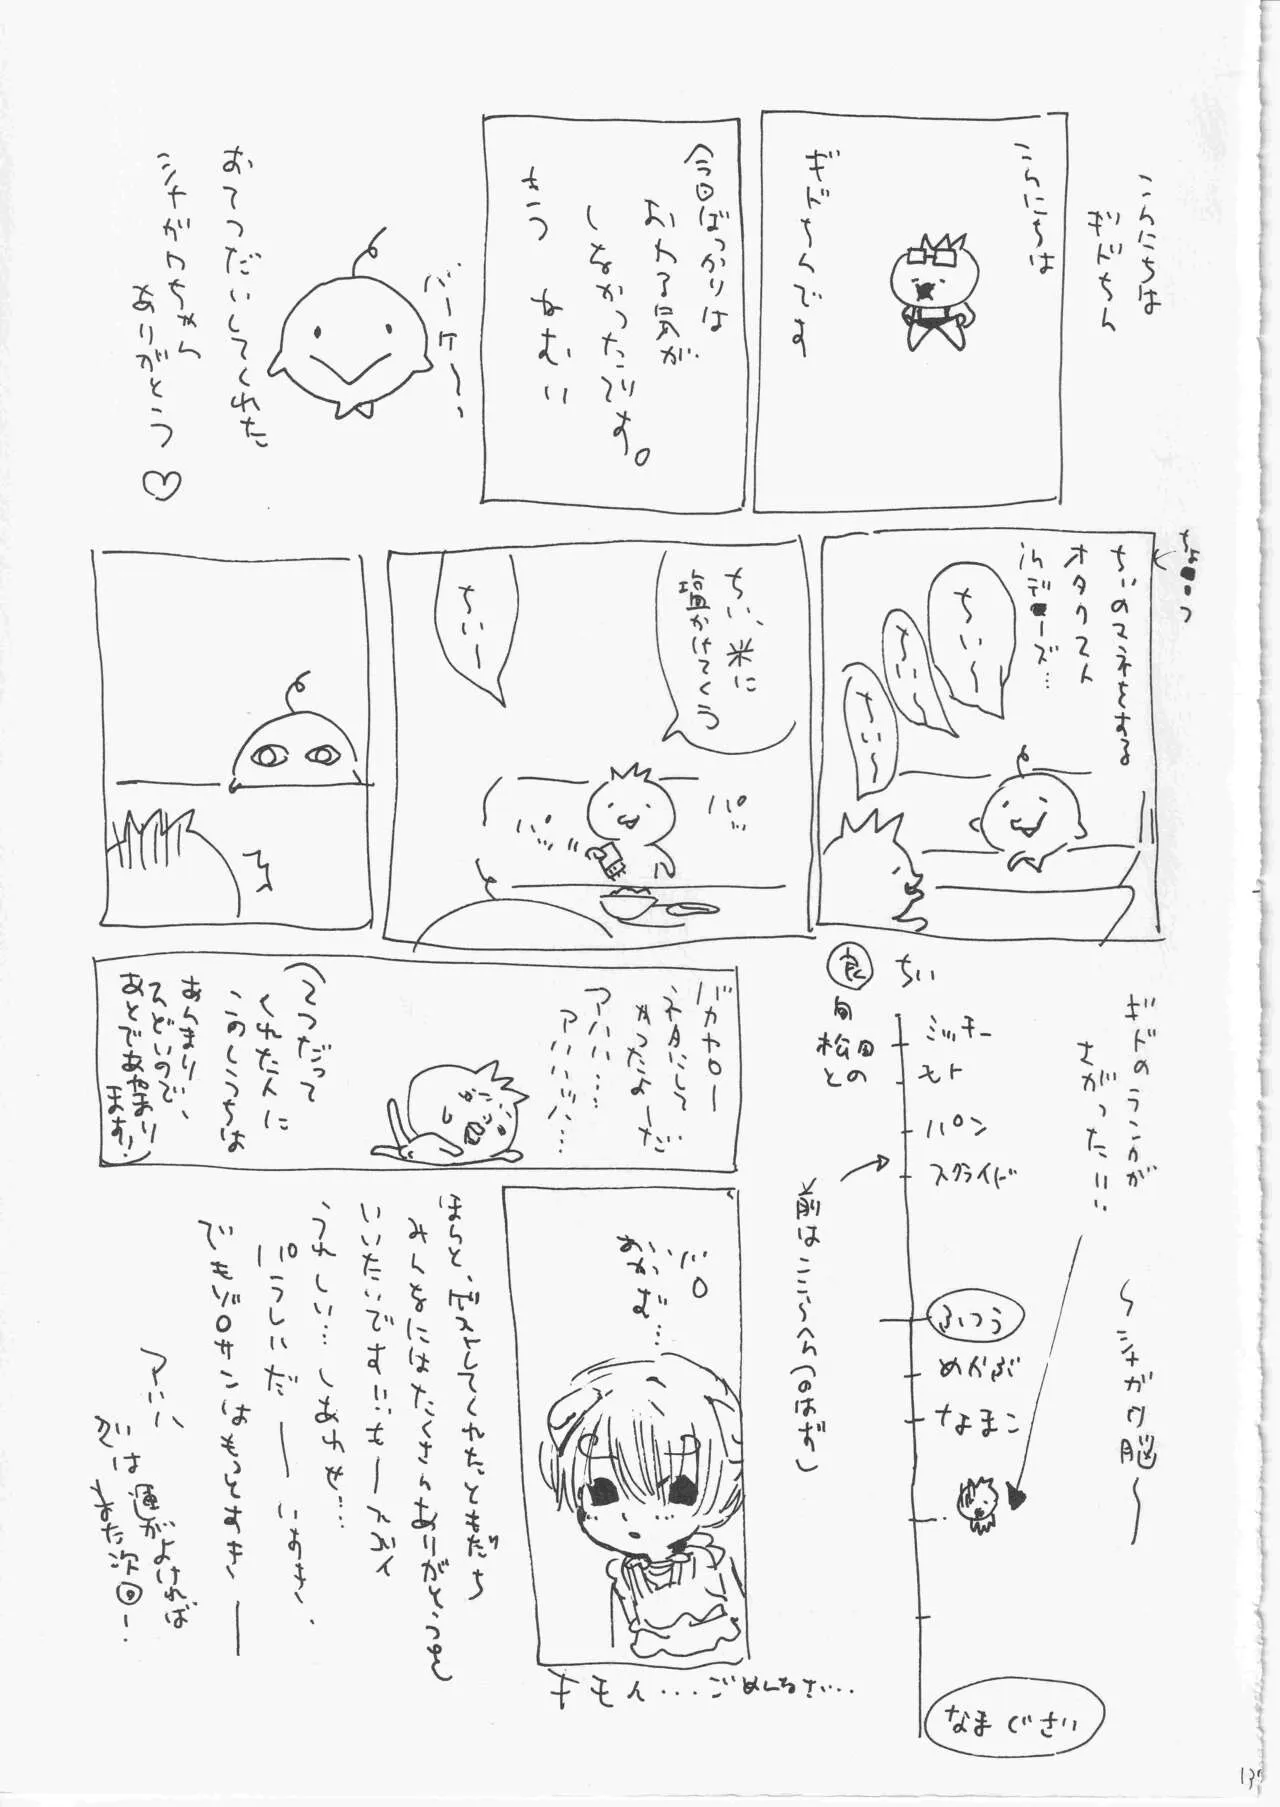 こんにちは
ギドちん
こんにちは
ギドちんです
今回ばっかりは
おわる気が
しなかったです。
きつ ねむい
バーケ〜、
おてつだいしてくれた
シャガワちゃん
ありがとう♡
ちぃのマネをする
オタクマスト
ちぃ〜
ちぃ〜
ちぃ〜
ちぃ、米に
塩かけてくう
ちぃー
パッ
ギドのランクが
さがった!!!
〜シャガワ脳〜
良
ちぃ
旬
松田
との
ミッキー
モト
パン
スクライド
前はここらへん(のはず)
ふつう
めかぶ
なまこ
なまぐさい
バカヤロー
ネタにして
やったよーだ
アハハ…
アハハハハ…
(てつだって
くれた人に
このしうちは
あんまり
ひどいので、
あとであやまり
ます!)
バロ
おかむ…
キモイ...ごめんなさい...
ほんと、ゲストしてくれたともだち
みんなにはたくさんありがとうを
いいたいです!!
うれしい…しあわせ…
パラしにだ――
でもゾロサンはもっとすき――
アハハ
では運がよければ
また次回ー
13